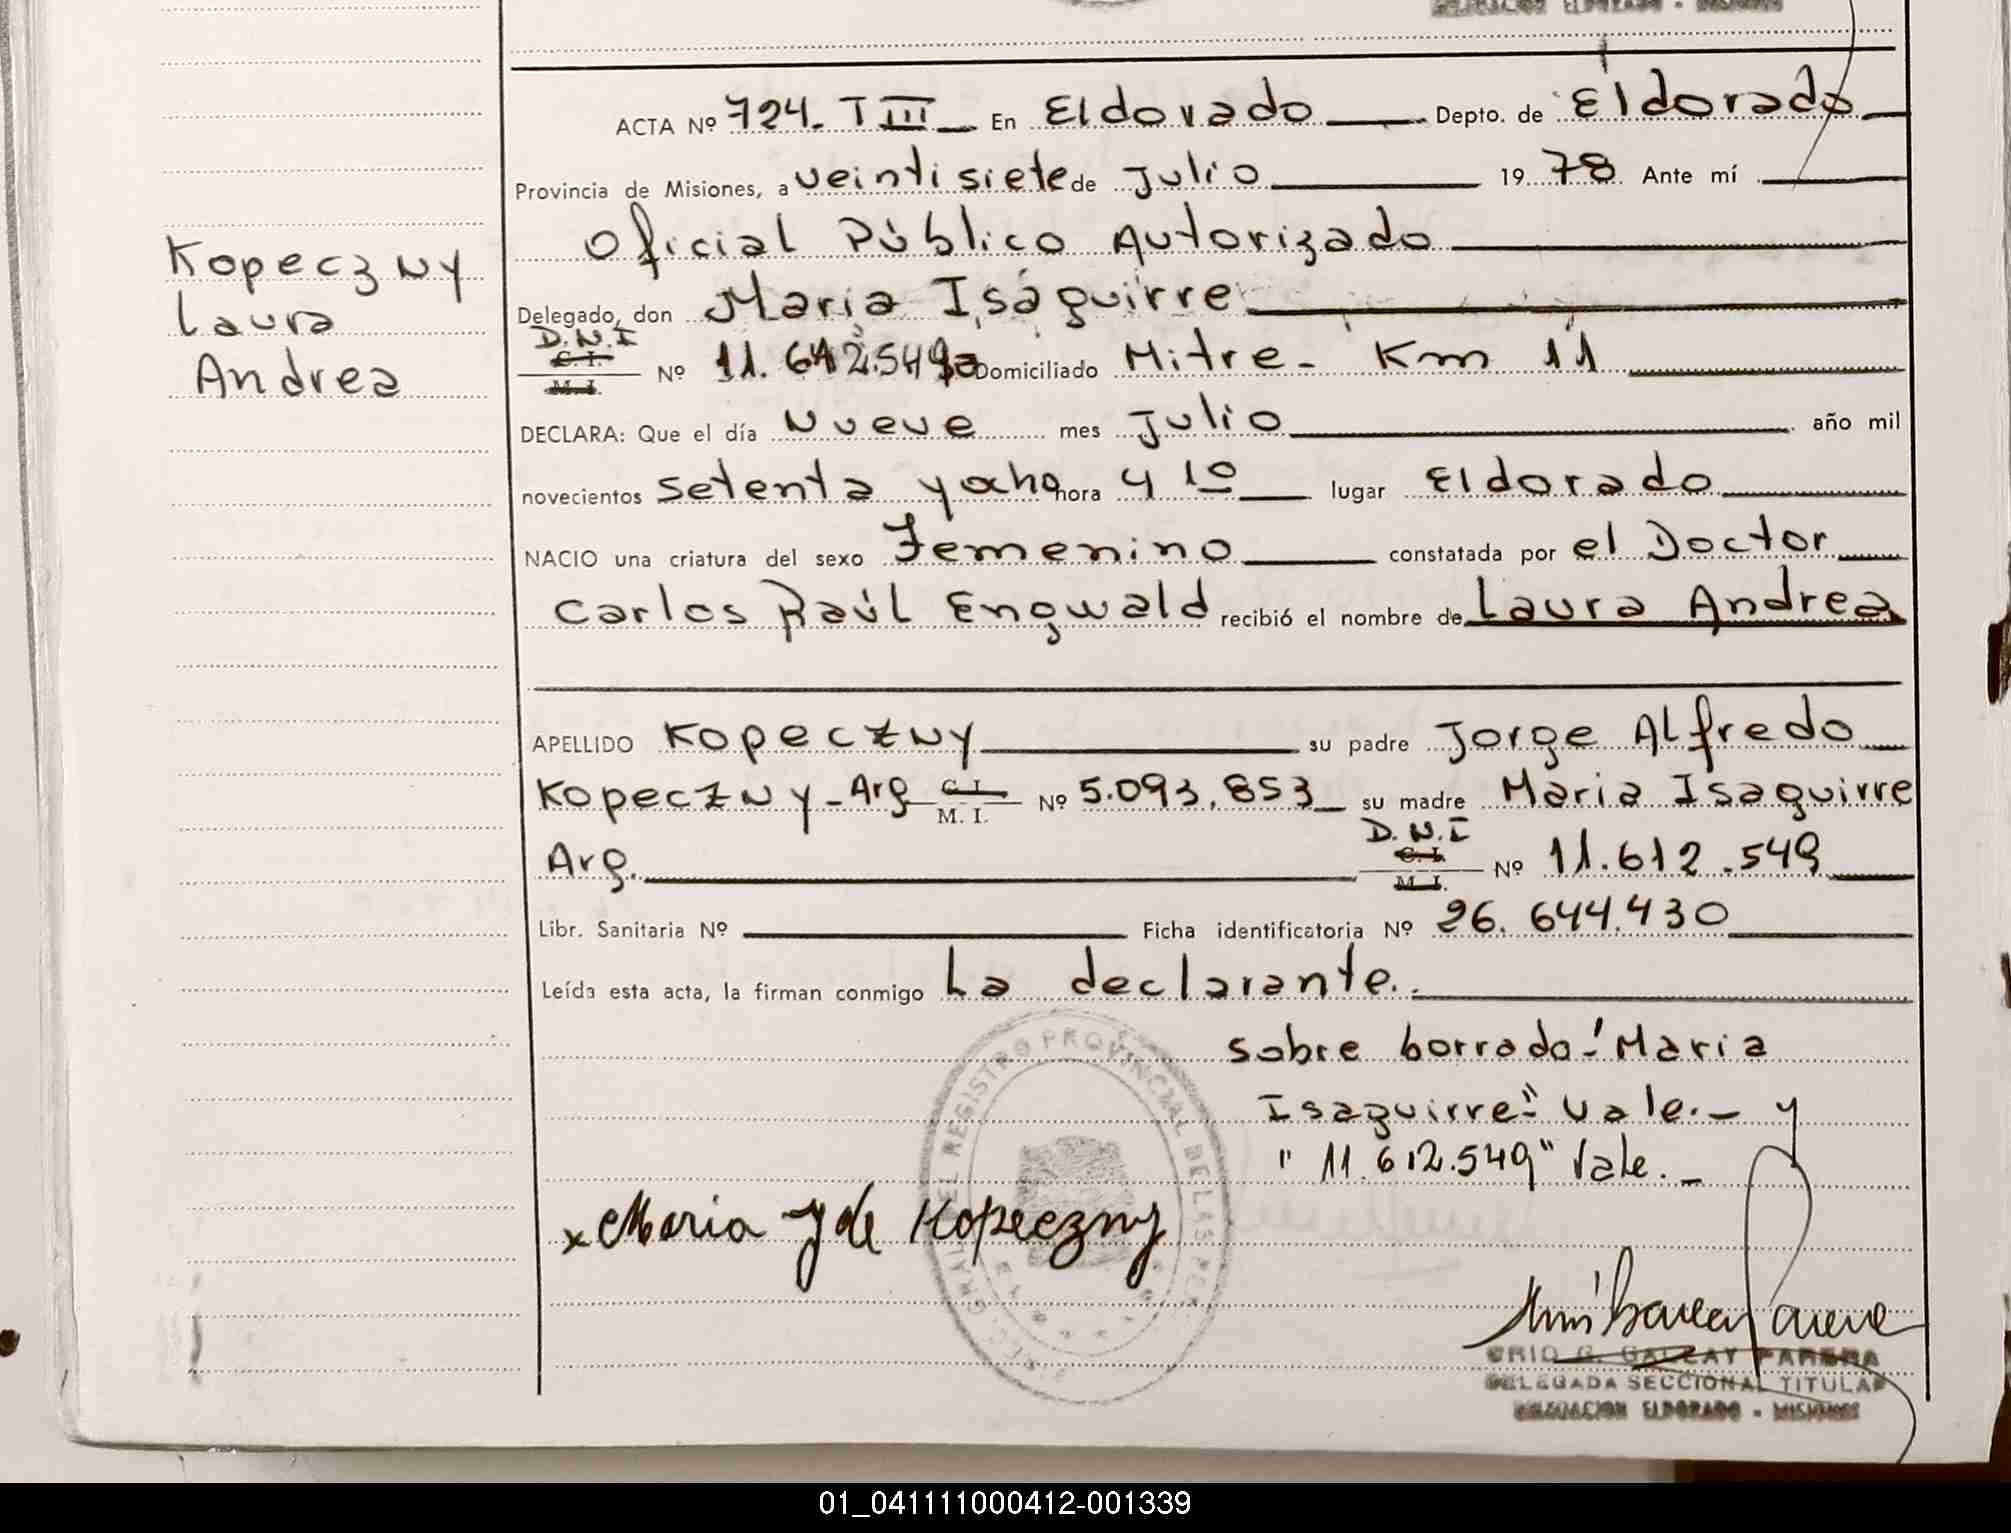 ACTA Nº 724. T III En Eldorado Depto. de Eldorado
Provincia de Misiones, a veintisiete de Julio 19 78 Ante mí
Oficial Público Autorizado
Kopeczny
Laura
Andrea
Delegado, don Maria Isaguirre
D.N.I
C. I.
M. I. Nº 11.612.549 Domiciliado Mitre - Km 11
DECLARA: Que el día Nueve mes Julio año mil
novecientos setenta y ocho hora 4 10 lugar Eldorado
NACIO una criatura del sexo Femenino constatada por el Doctor
Carlos Raúl Engwald recibió el nombre de Laura Andrea
APELLIDO Kopeczny su padre Jorge Alfredo
Kopeczny - Arg C. I.
M. I. Nº 5.093.853 su madre Maria Isaguirre
Arg. D.N.I
C. I.
M. I. Nº 11.612.549
Libr. Sanitaria Nº Ficha identificatoria Nº 26.644.430
Leída esta acta, la firman conmigo La declarante.
sobre borrado: "Maria
Isaguirre" Vale.- y
"11.612.549" Vale.-
x Maria Y de Kopeczny
REGISTRO PROVINCIAL DE LAS PER
GALLAY PARERA
DELEGADA SECCIONAL TITULAR
DELEGACION ELDORADO - MISIONES
01_041111000412-001339